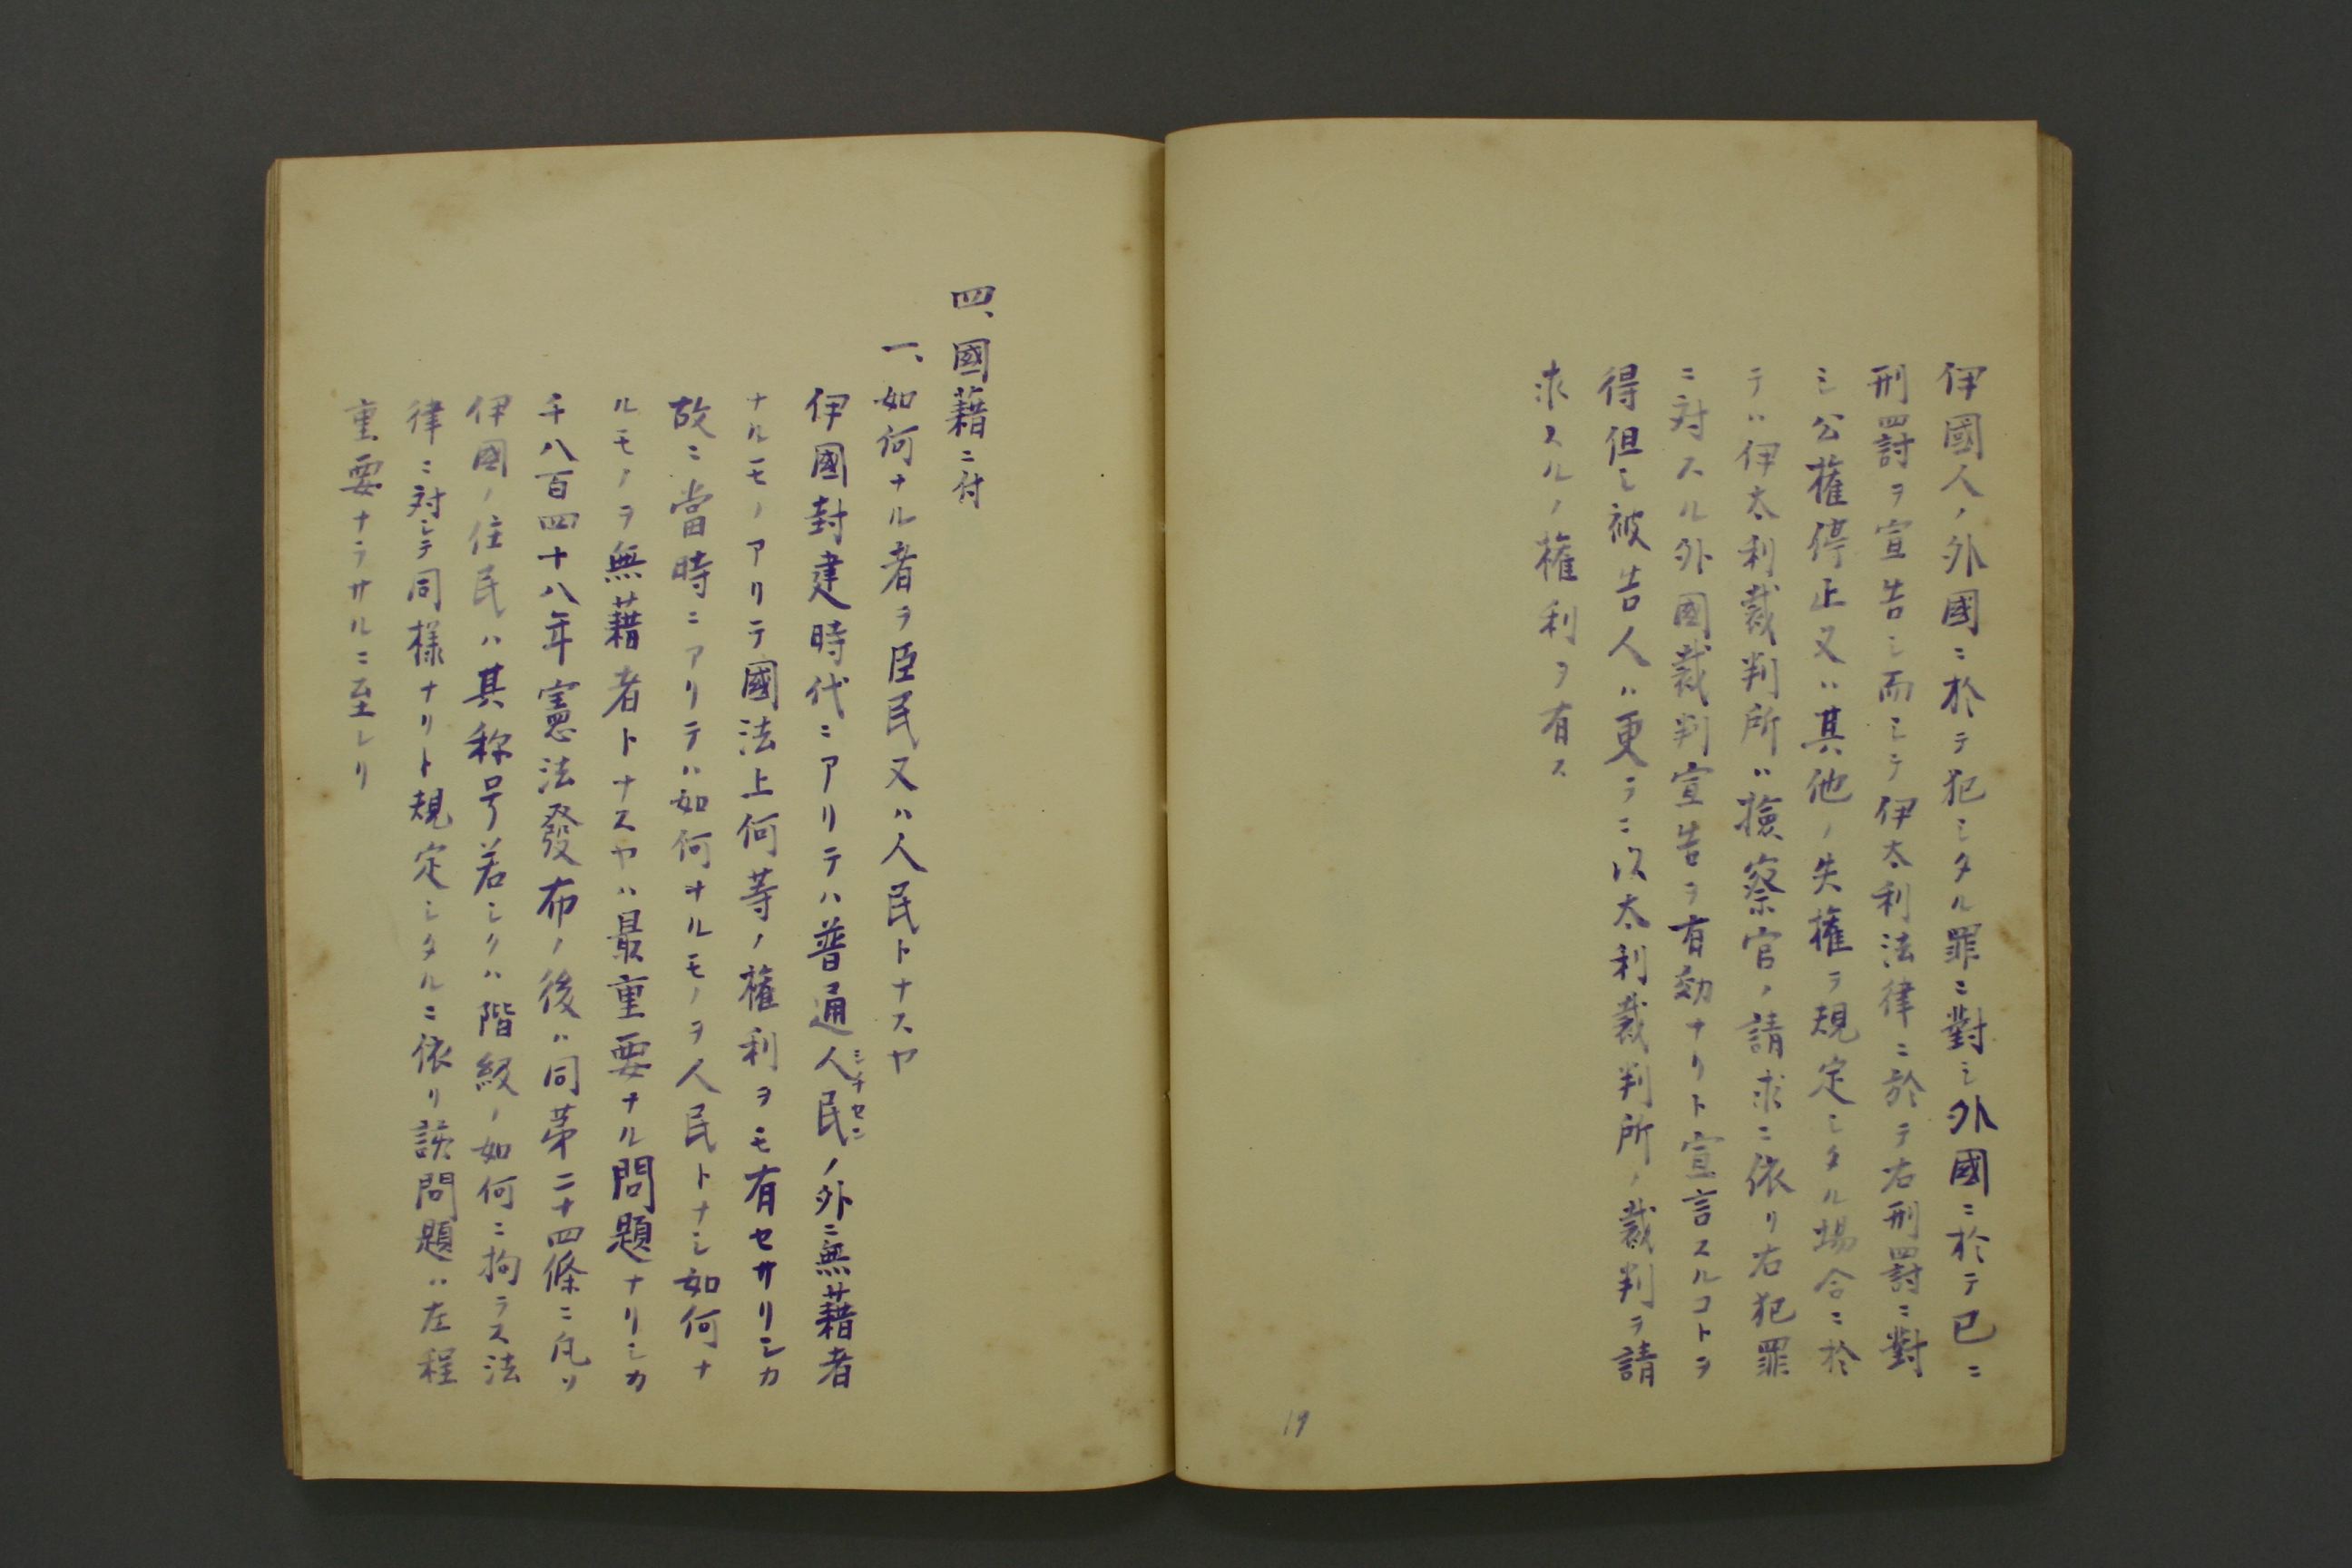 伊國人ノ外國ニ於テ犯シタル罪ニ對シ外國ニ於テ已ニ
刑罰ヲ宣告シ而シテ伊太利法律ニ於テ右刑罰ニ對
シ公権停止又ハ其他ノ失権ヲ規定シタル場合ニ於
テハ伊太利裁判所ハ撿察官ノ請求ニ依リ右犯罪
ニ対スル外國裁判宣告ヲ有効ナリト宣言スルコトヲ
得但シ被告人ハ更ラニ以太利裁判所ノ裁判ヲ請
求スルノ権利ヲ有ス
19
四、國藉ニ付
一、如何ナル者ヲ臣民又ハ人民トナスヤ
伊國封建時代ニアリテハ普通人民ノ外ニ無藉者
シチゼン
ナルモノアリテ國法上何等ノ権利ヲモ有セサリシカ
故ニ當時ニアリテハ如何ナルモノヲ人民トナシ如何ナ
ルモノヲ無藉者トナスヤハ最重要ナル問題ナリシカ
千八百四十八年憲法發布ノ後ハ同第二十四條ニ凡ソ
伊國ノ住民ハ其称号若シクハ階級ノ如何ニ拘ラス法
律ニ対シテ同様ナリト規定シタルニ依リ該問題ハ左程
重要ナラサルニ至レリ